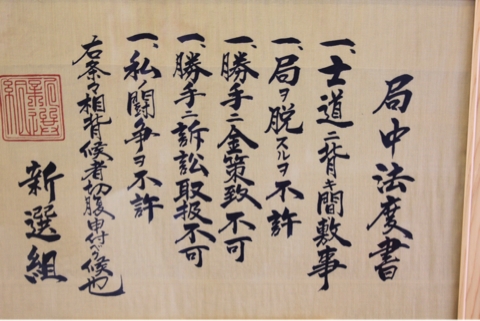 局中法度書
一、士道ニ背キ間敷事
一、局ヲ脱スルヲ不許
一、勝手ニ金策致不可
一、勝手ニ訴訟取扱不可
一、私ノ闘争ヲ不許
右条々相背候者切腹申付ベク候也
新選組